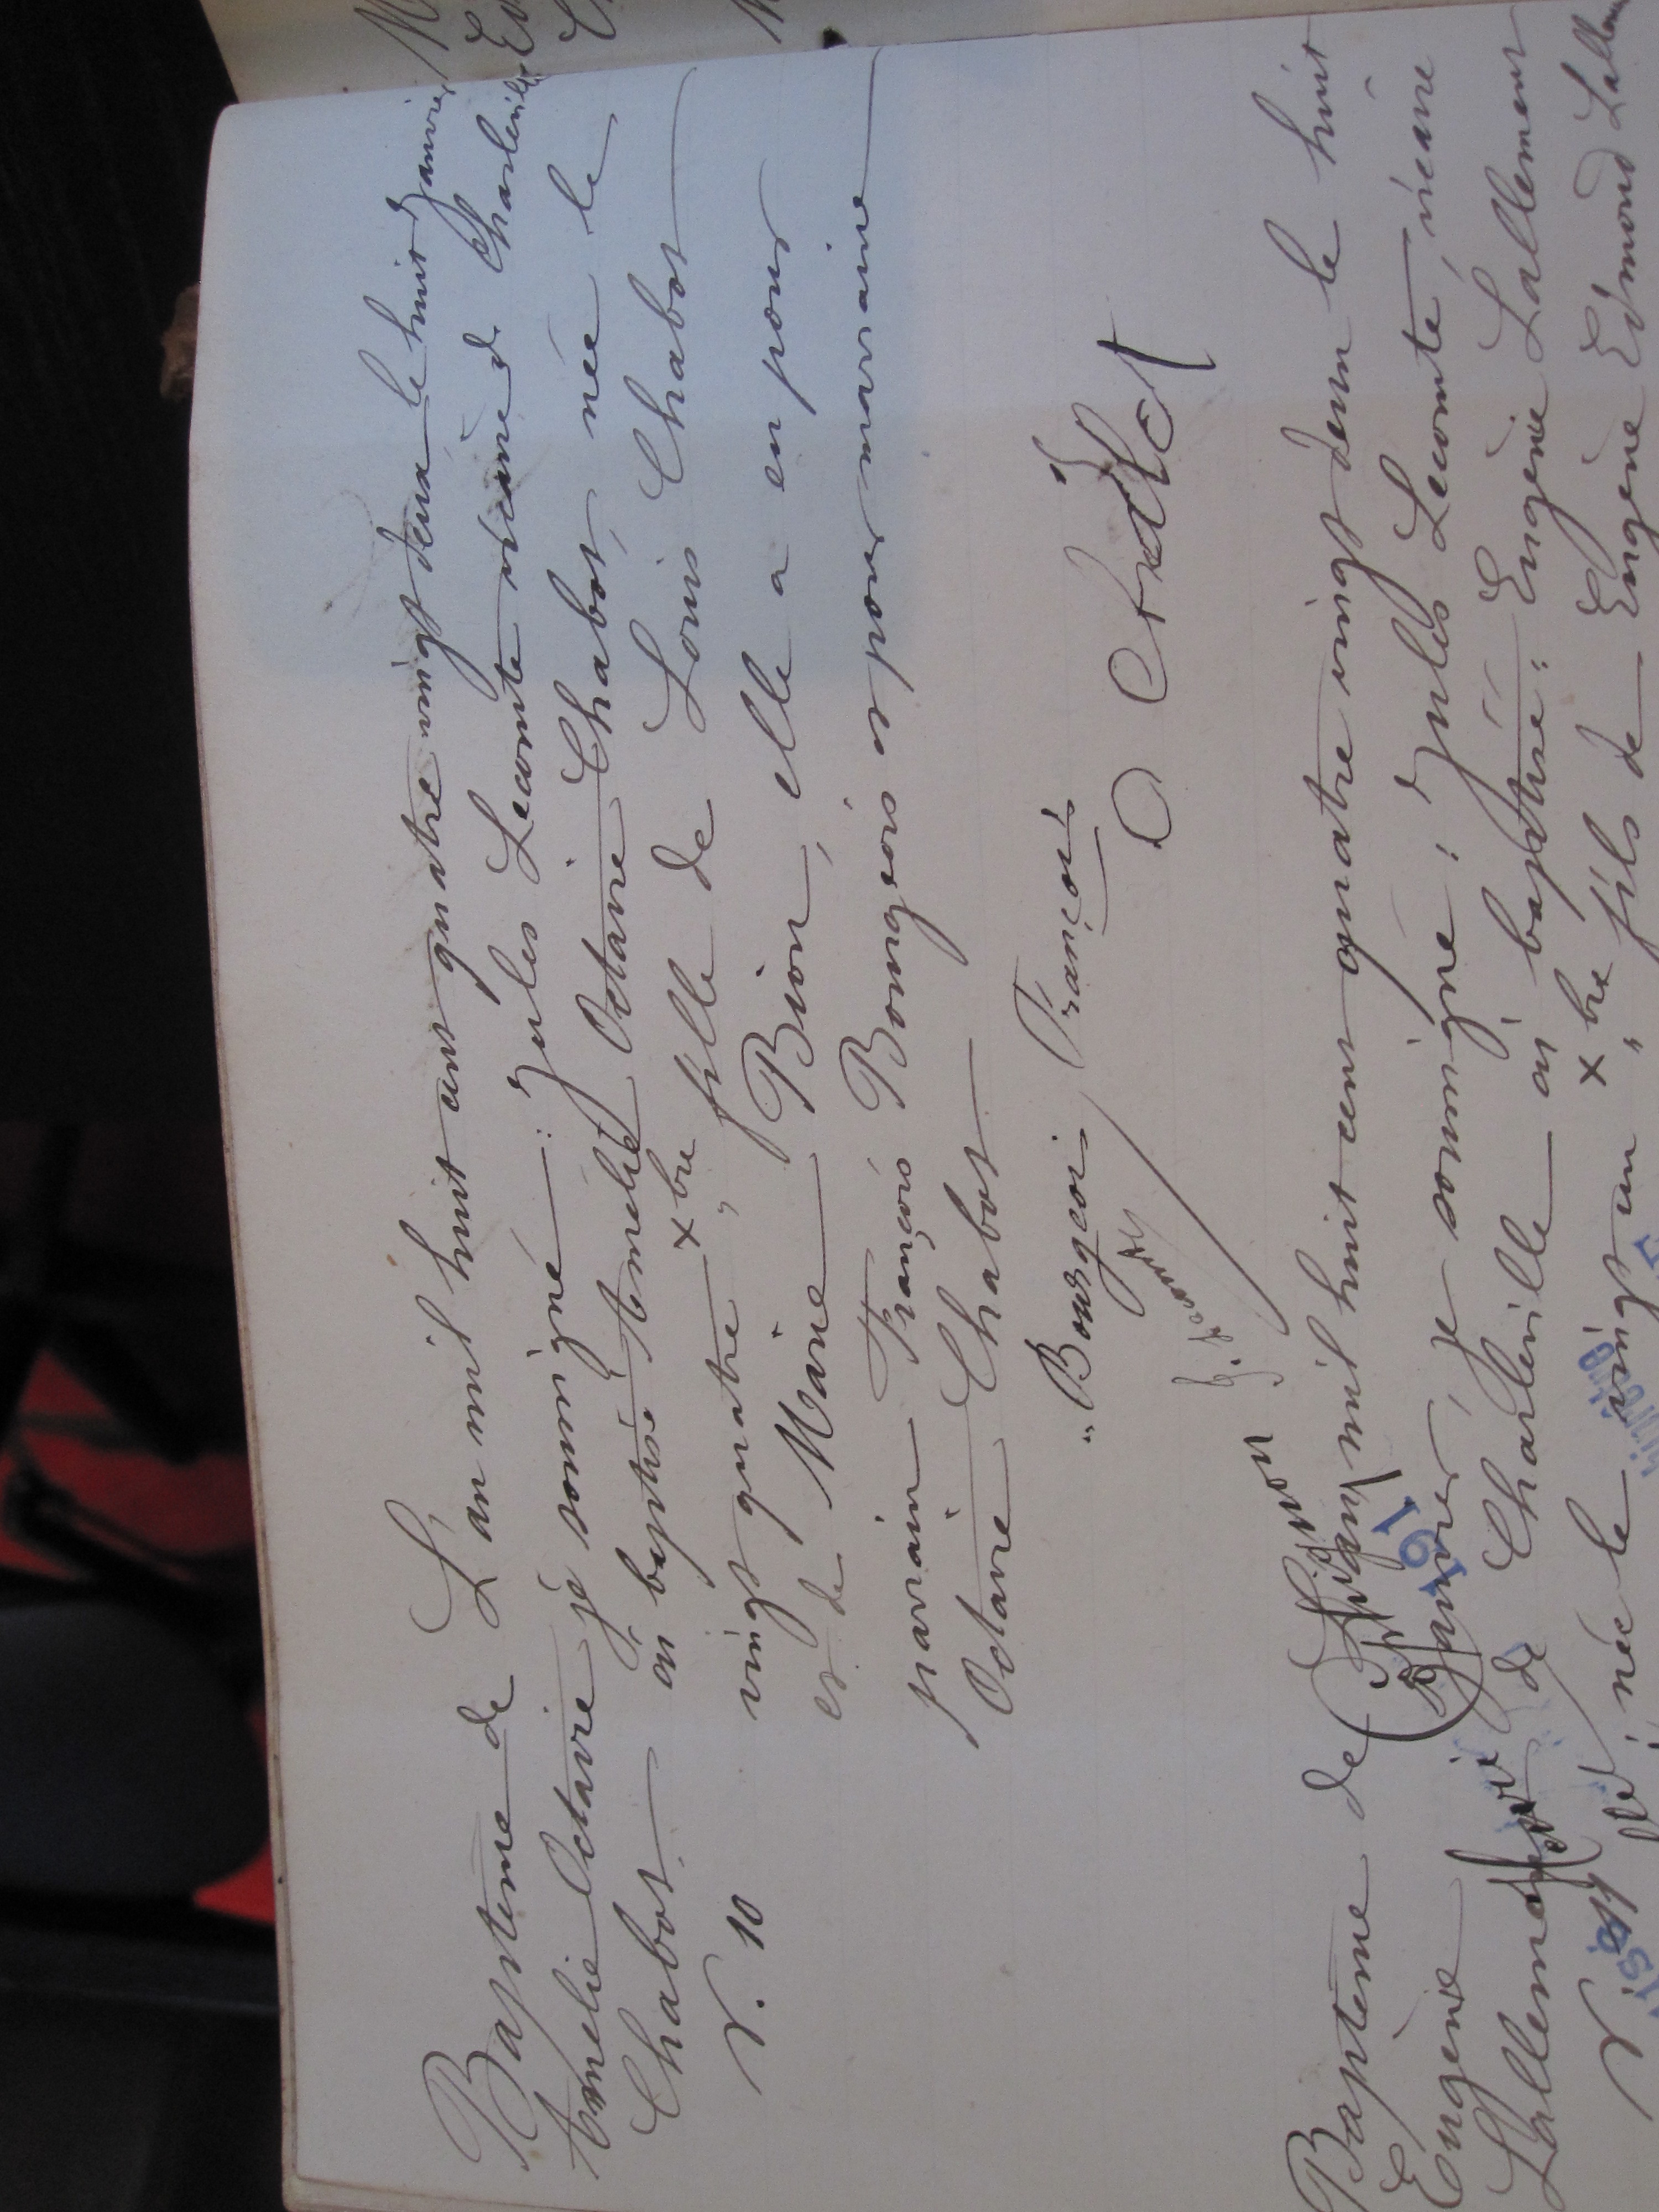 Baptème de
Amélie Octavie
Chabot
N. 10
L'an mil huit cent quatre vingt deux le huit Janvier
je soussigné : Jules Lecomte vicaire d Charleville
ai baptisé Amélie Octavie Chabot, née le
vingt quatre xbre fille de Louis Chabot
et de Marie Bion, elle a eu pour
parrain François Bourgeois et pour marraine
Octavie Chabot
Bourgeois François
O Chabot
J. Lecomte
Baptème de
Eugène
Lallement
N. 11
L'an mil huit cent quatre vingt deux le huit
Janvier, je soussigné : Jules Lecomte, vicaire
de Charleville ai baptisé : Eugène Lallement
né le vingt un xbre fils de Eugène Edmond
191